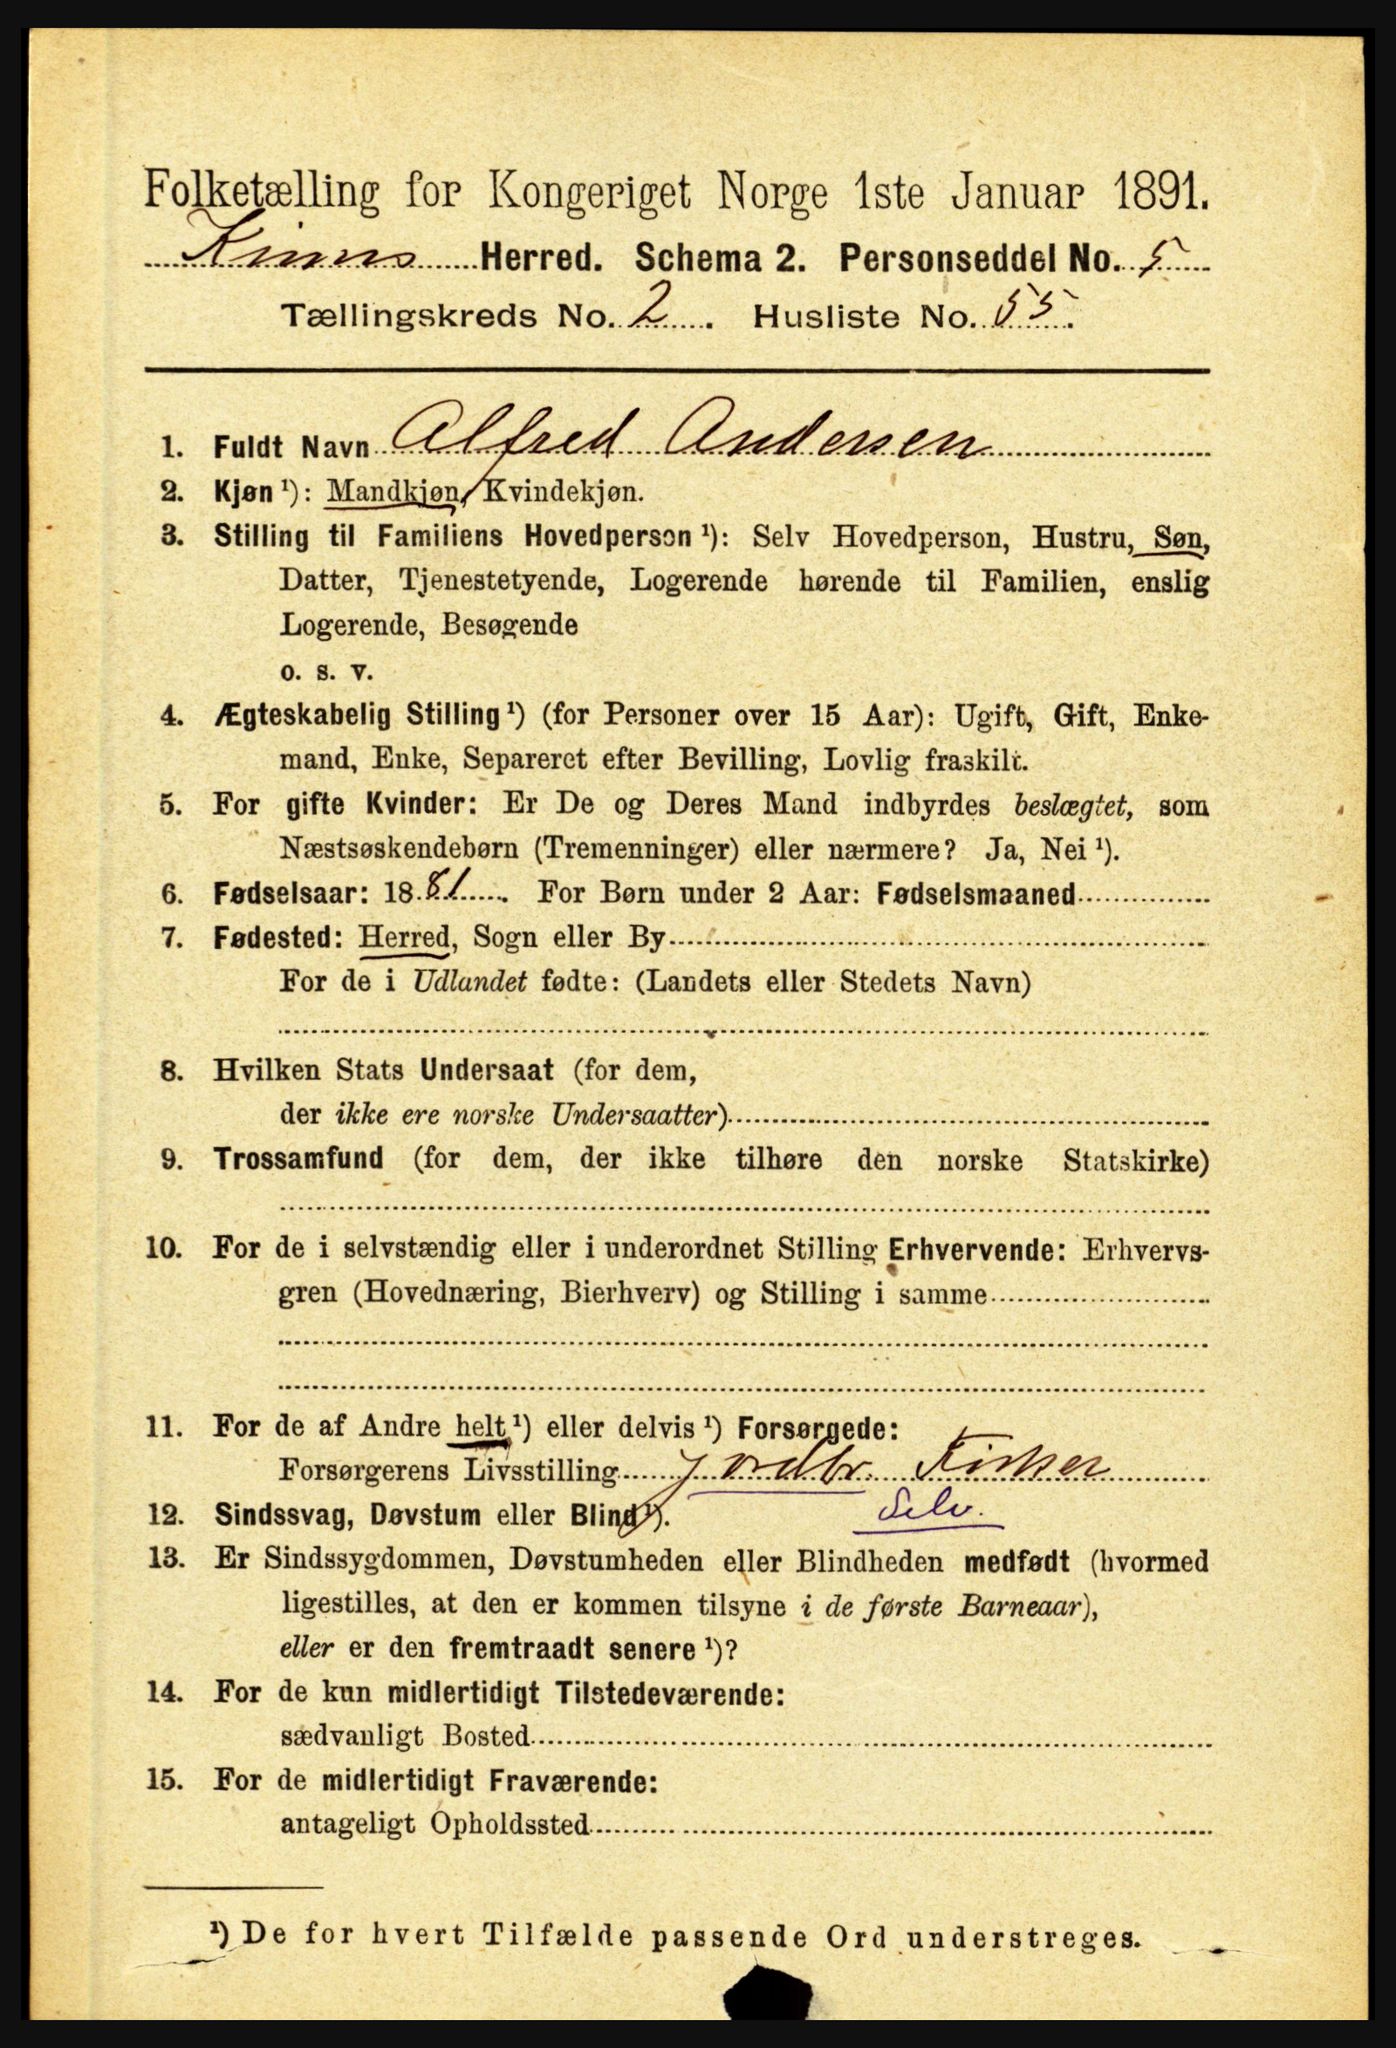 Folketælling for Kongeriget Norge 1ste Januar 1891.
Kinns Herred. Schema 2. Personseddel No. 5
Tællingskreds No. 2. Husliste No. 55.
1. Fuldt Navn Alfred Andersen
2. Kjøn ¹): Mandkjøn, Kvindekjøn.
3. Stilling til Familiens Hovedperson ¹): Selv Hovedperson, Hustru, Søn,
Datter, Tjenestetyende, Logerende hørende til Familien, enslig
Logerende, Besøgende
o. s. v.
4. Ægteskabelig Stilling ¹) (for Personer over 15 Aar): Ugift, Gift, Enke-
mand, Enke, Separeret efter Bevilling, Lovlig fraskilt.
5. For gifte Kvinder: Er De og Deres Mand indbyrdes beslægtet, som
Næstsøskendebørn (Tremenninger) eller nærmere? Ja, Nei ¹).
6. Fødselsaar: 1881. For Børn under 2 Aar: Fødselsmaaned
7. Fødested: Herred, Sogn eller By
For de i Udlandet fødte: (Landets eller Stedets Navn)
8. Hvilken Stats Undersaat (for dem,
der ikke ere norske Undersaatter)
9. Trossamfund (for dem, der ikke tilhøre den norske Statskirke)
10. For de i selvstændig eller i underordnet Stilling Erhvervende: Erhvervs-
gren (Hovednæring, Bierhverv) og Stilling i samme
11. For de af Andre helt ¹) eller delvis ¹) Forsørgede:
Forsørgerens Livsstilling jordbr. Fisker
Selv.
12. Sindssvag, Døvstum eller Blind ¹).
13. Er Sindssygdommen, Døvstumheden eller Blindheden medfødt (hvormed
ligestilles, at den er kommen tilsyne i de første Barneaar),
eller er den fremtraadt senere ¹)?
14. For de kun midlertidigt Tilstedeværende:
sædvanligt Bosted
15. For de midlertidigt Fraværende:
antageligt Opholdssted
¹) De for hvert Tilfælde passende Ord understreges.